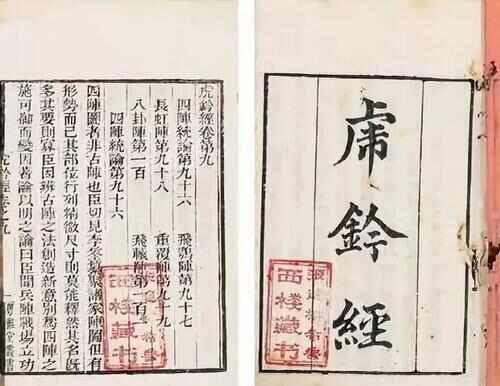 虎鈐經
西棧藏书
虎鈐經卷第九
四陣統論第九十六 飛鶚陣第九十七
長虹陣第九十八 重覆陣第九十九
八卦陣第一百 飛轅陣第一百
四陣統論第九十六
四陣圖者非古陣也臣切見李筌纂集諸家陣圖但有
形勢而已其部位行列精微尺寸則莫能釋然其名既
多其要則寡臣因古陣之法創造新意別爲四陣之
施可御而變因著論以明之論曰臣聞兵陣戰場立功
虎鈐經卷之九 一 粤雅堂叢書
西棧藏书